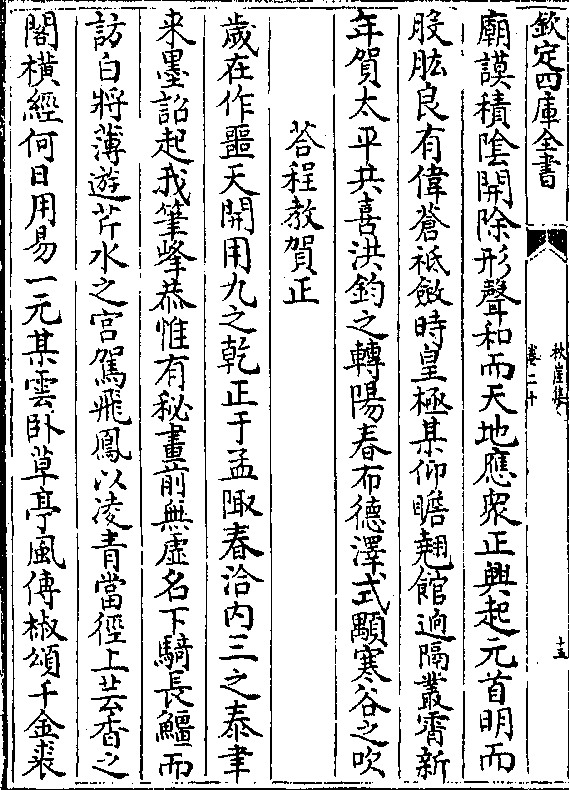 欽定四庫全書
秋崖集
卷二十
廟謨積陰開除形聲和而天地應衆正興起元首明而
股肱良有偉蒼祗斂時皇極某仰瞻翹館逈隔叢霄新
年賀太平共喜洪鈞之轉陽春布德澤式顒寒谷之吹
荅程教賀正
歲在作噩天開用九之乾正于孟陬春洽内三之泰聿
来墨詔起我筆峰恭惟有秘畫前無虚名下騎長鱷而
訪白將薄遊芹水之宫駕飛鳳以凌青當徑上芸香之
閣横經何日用易一元某雲卧草亭風傳椒頌千金裘